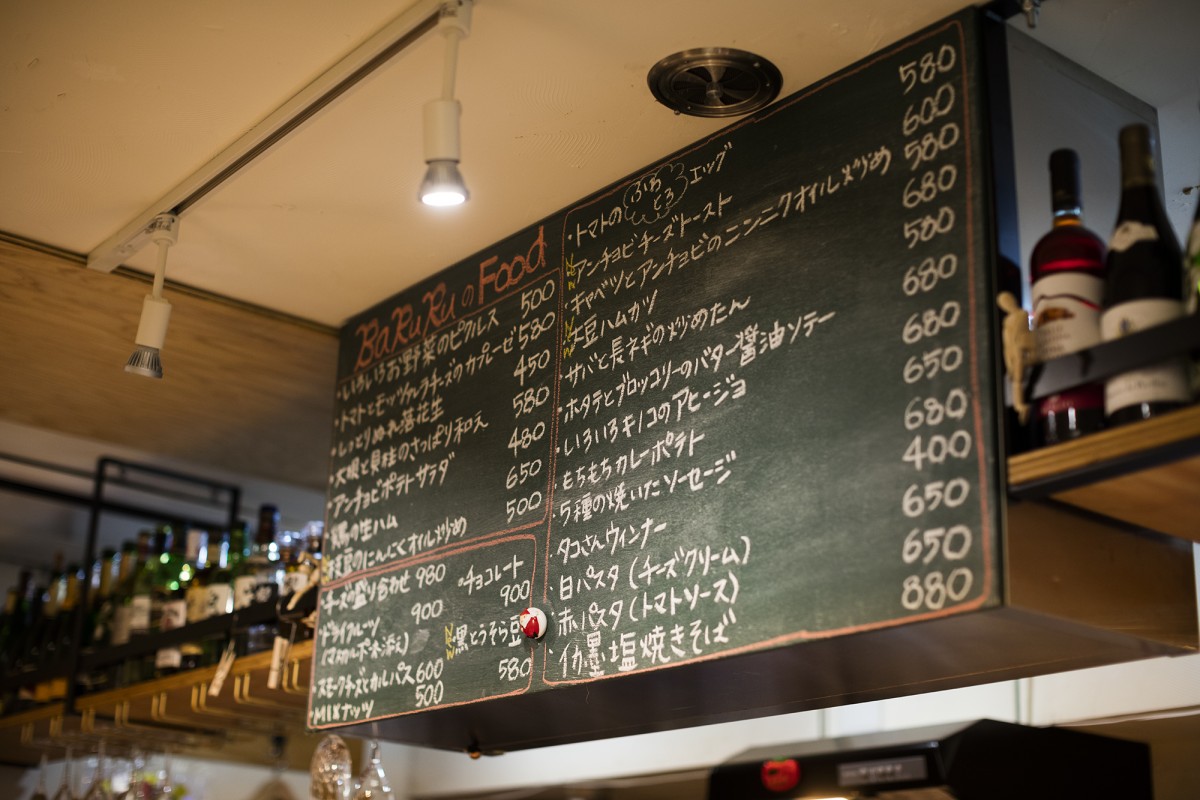 BaRuRuのFood
・いろいろお野菜のピクルス 500
・トマトとモッツァレラチーズのカプレーゼ 580
・しっとりぬれ落花生 450
・大根と貝柱のさっぱり和え 580
・アンチョビポテトサラダ 480
馬の生ハム 650
枝豆のにんにくオイル炒め 500
・チーズの盛り合わせ 980
・ドライフルーツ 900
(マスカルポーネ添え)
・スモークチーズとカルパス 600
・MIXナッツ 500
・チョコレート
900
黒とうそら豆
580
・トマトのふわとろエッグ 580
アンチョビチーズトースト 600
キャベツとアンチョビのニンニクオイル炒め 580
大豆ハムカツ 680
サバと長ネギの炒めたん 580
・ホタテとブロッコリーのバター醤油ソテー 680
・いろいろキノコのアヒージョ 680
・もちもちカレーポテト 650
・5種の焼いたソーセージ 680
タコさんウィンナー 400
・白パスタ(チーズクリーム) 650
・赤パスタ(トマトソース) 650
・イカ墨塩焼きそば 880